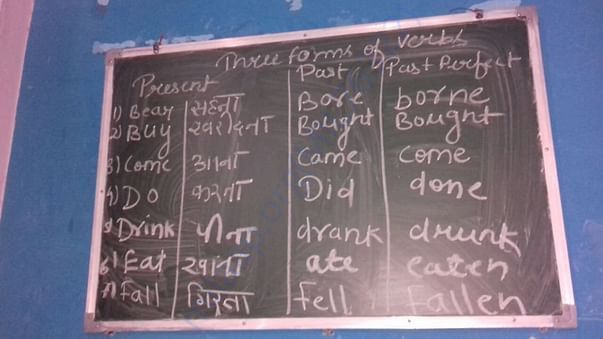 Three forms of verbs
Present Past Past Perfect
1) Bear सहना Bore borne
2) Buy खरीदना Bought Bought
3) Come आना Came come
4) Do करना Did done
5) Drink पीना drank drunk
6) Eat खाना ate eaten
7) Fall गिरना fell Fallen